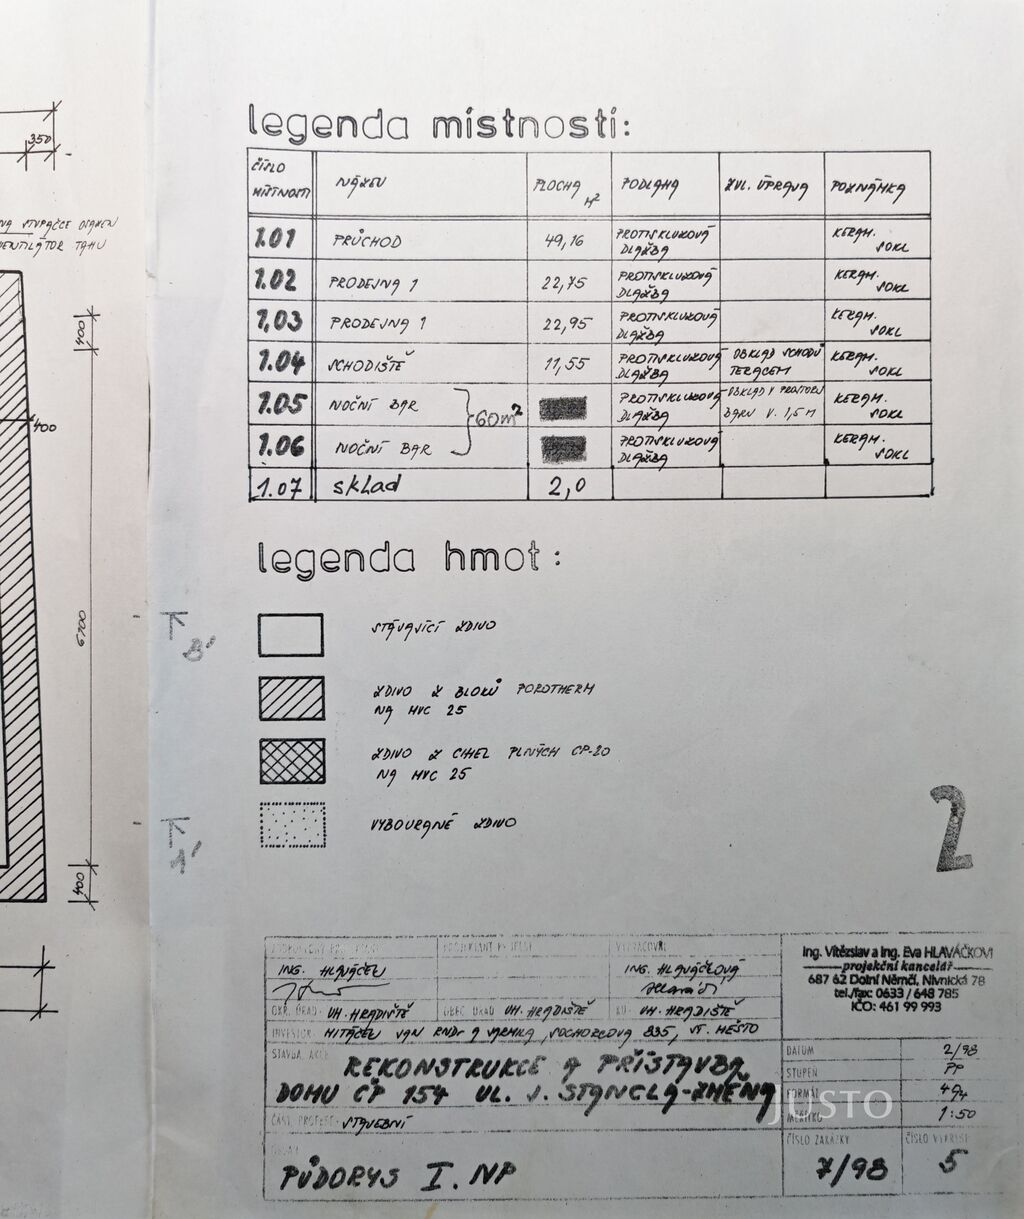 350
NA STUPAČCE OSAZEN
VENTILÁTOR TAHU
400
400
6700
400
legenda místností:
ČÍSLO MÍSTNOSTI NÁZEV PLOCHA M² PODLAHA ZVL. ÚPRAVA POZNÁMKA
1.01 PRŮCHOD 49,16 PROTISKLUZOVÁ DLAŽBA KERAM. SOKL
1.02 PRODEJNA 1 22,75 PROTISKLUZOVÁ DLAŽBA KERAM. SOKL
1,03 PRODEJNA 1 22,95 PROTISKLUZOVÁ DLAŽBA KERAM. SOKL
1.04 SCHODIŠTĚ 11,55 PROTISKLUZOVÁ DLAŽBA OBKLAD SCHODŮ TERACEM KERAM. SOKL
1.05 NOČNÍ BAR 60m² PROTISKLUZOVÁ DLAŽBA OBKLAD V PROSTORU BARU V. 1,5 M KERAM. SOKL
1.06 NOČNÍ BAR PROTISKLUZOVÁ DLAŽBA KERAM. SOKL
1.07 sklad 2,0
legenda hmot:
STÁVAJÍCÍ ZDIVO
ZDIVO Z BLOKŮ POROTHERM
NA MVC 25
ZDIVO Z CIHEL PLNÝCH CP-20
NA MVC 25
VYBOURANÉ ZDIVO
B'
A'
2
VYPRACOVAL
ING. HLAVÁČEK ING. HLAVÁČKOVÁ
Ing. Vítězslav a Ing. Eva HLAVÁČKOVI
projekční kancelář
687 62 Dolní Němčí, Nivnická 78
tel./fax: 0633 / 648 785
IČO: 461 99 993
OKR. ÚŘAD UH. HRADIŠTĚ OBEC. ÚŘAD UH. HRADIŠTĚ KÚ UH. HRADIŠTĚ
INVESTOR: JAN RNDr A JARMILA, SOCHORCOVA 835, ST. MĚSTO
STAVBA, AKCE
REKONSTRUKCE A PŘÍSTAVBA
DOMU ČP 154 UL. J. STANCLA-ZMĚNA
ČÁST, PROFESE: STAVEBNÍ
PŮDORYS I. NP
DATUM 2/98
STUPEŇ PP
FORMÁT 4A4
MĚŘÍTKO 1:50
ČÍSLO ZAKÁZKY ČÍSLO VÝKRESU
7/98 5
JUSTO